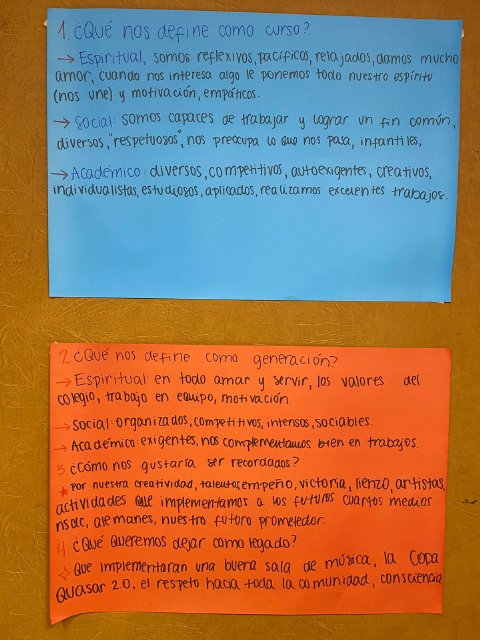 1. ¿Qué nos define como curso?
→ Espiritual, somos reflexivos, pacíficos, relajados, damos mucho
amor, cuando nos interesa algo le ponemos todo nuestro espíritu
(nos une) y motivación, empáticos.
→ Social: somos capaces de trabajar y lograr un fin común,
diversos, "respetuosos", nos preocupa lo que nos pasa, infantiles,
→ Académico: diversos, competitivos, autoexigentes, creativos,
individualistas, estudiosos, aplicados, realizamos excelentes trabajos.
2 ¿Qué nos define como generación?
→ Espiritual: en todo amar y servir, los valores del
colegio, trabajo en equipo, motivación.
→ Social: organizados, competitivos, intensos, sociables.
→ Académico: exigentes, nos complementamos bien en trabajos.
3 ¿Cómo nos gustaría ser recordados?
★ Por nuestra creatividad, talentos, empeño, victoria, lienzo, artistas,
actividades que implementamos a los futuros cuartos medios
nsdlc, alemanes, nuestro futuro prometedor.
4 ¿Qué queremos dejar como legado?
✧ Que implementaran una buena sala de música, la Copa
Quasar 2.0, el respeto hacia toda la comunidad, consciencia